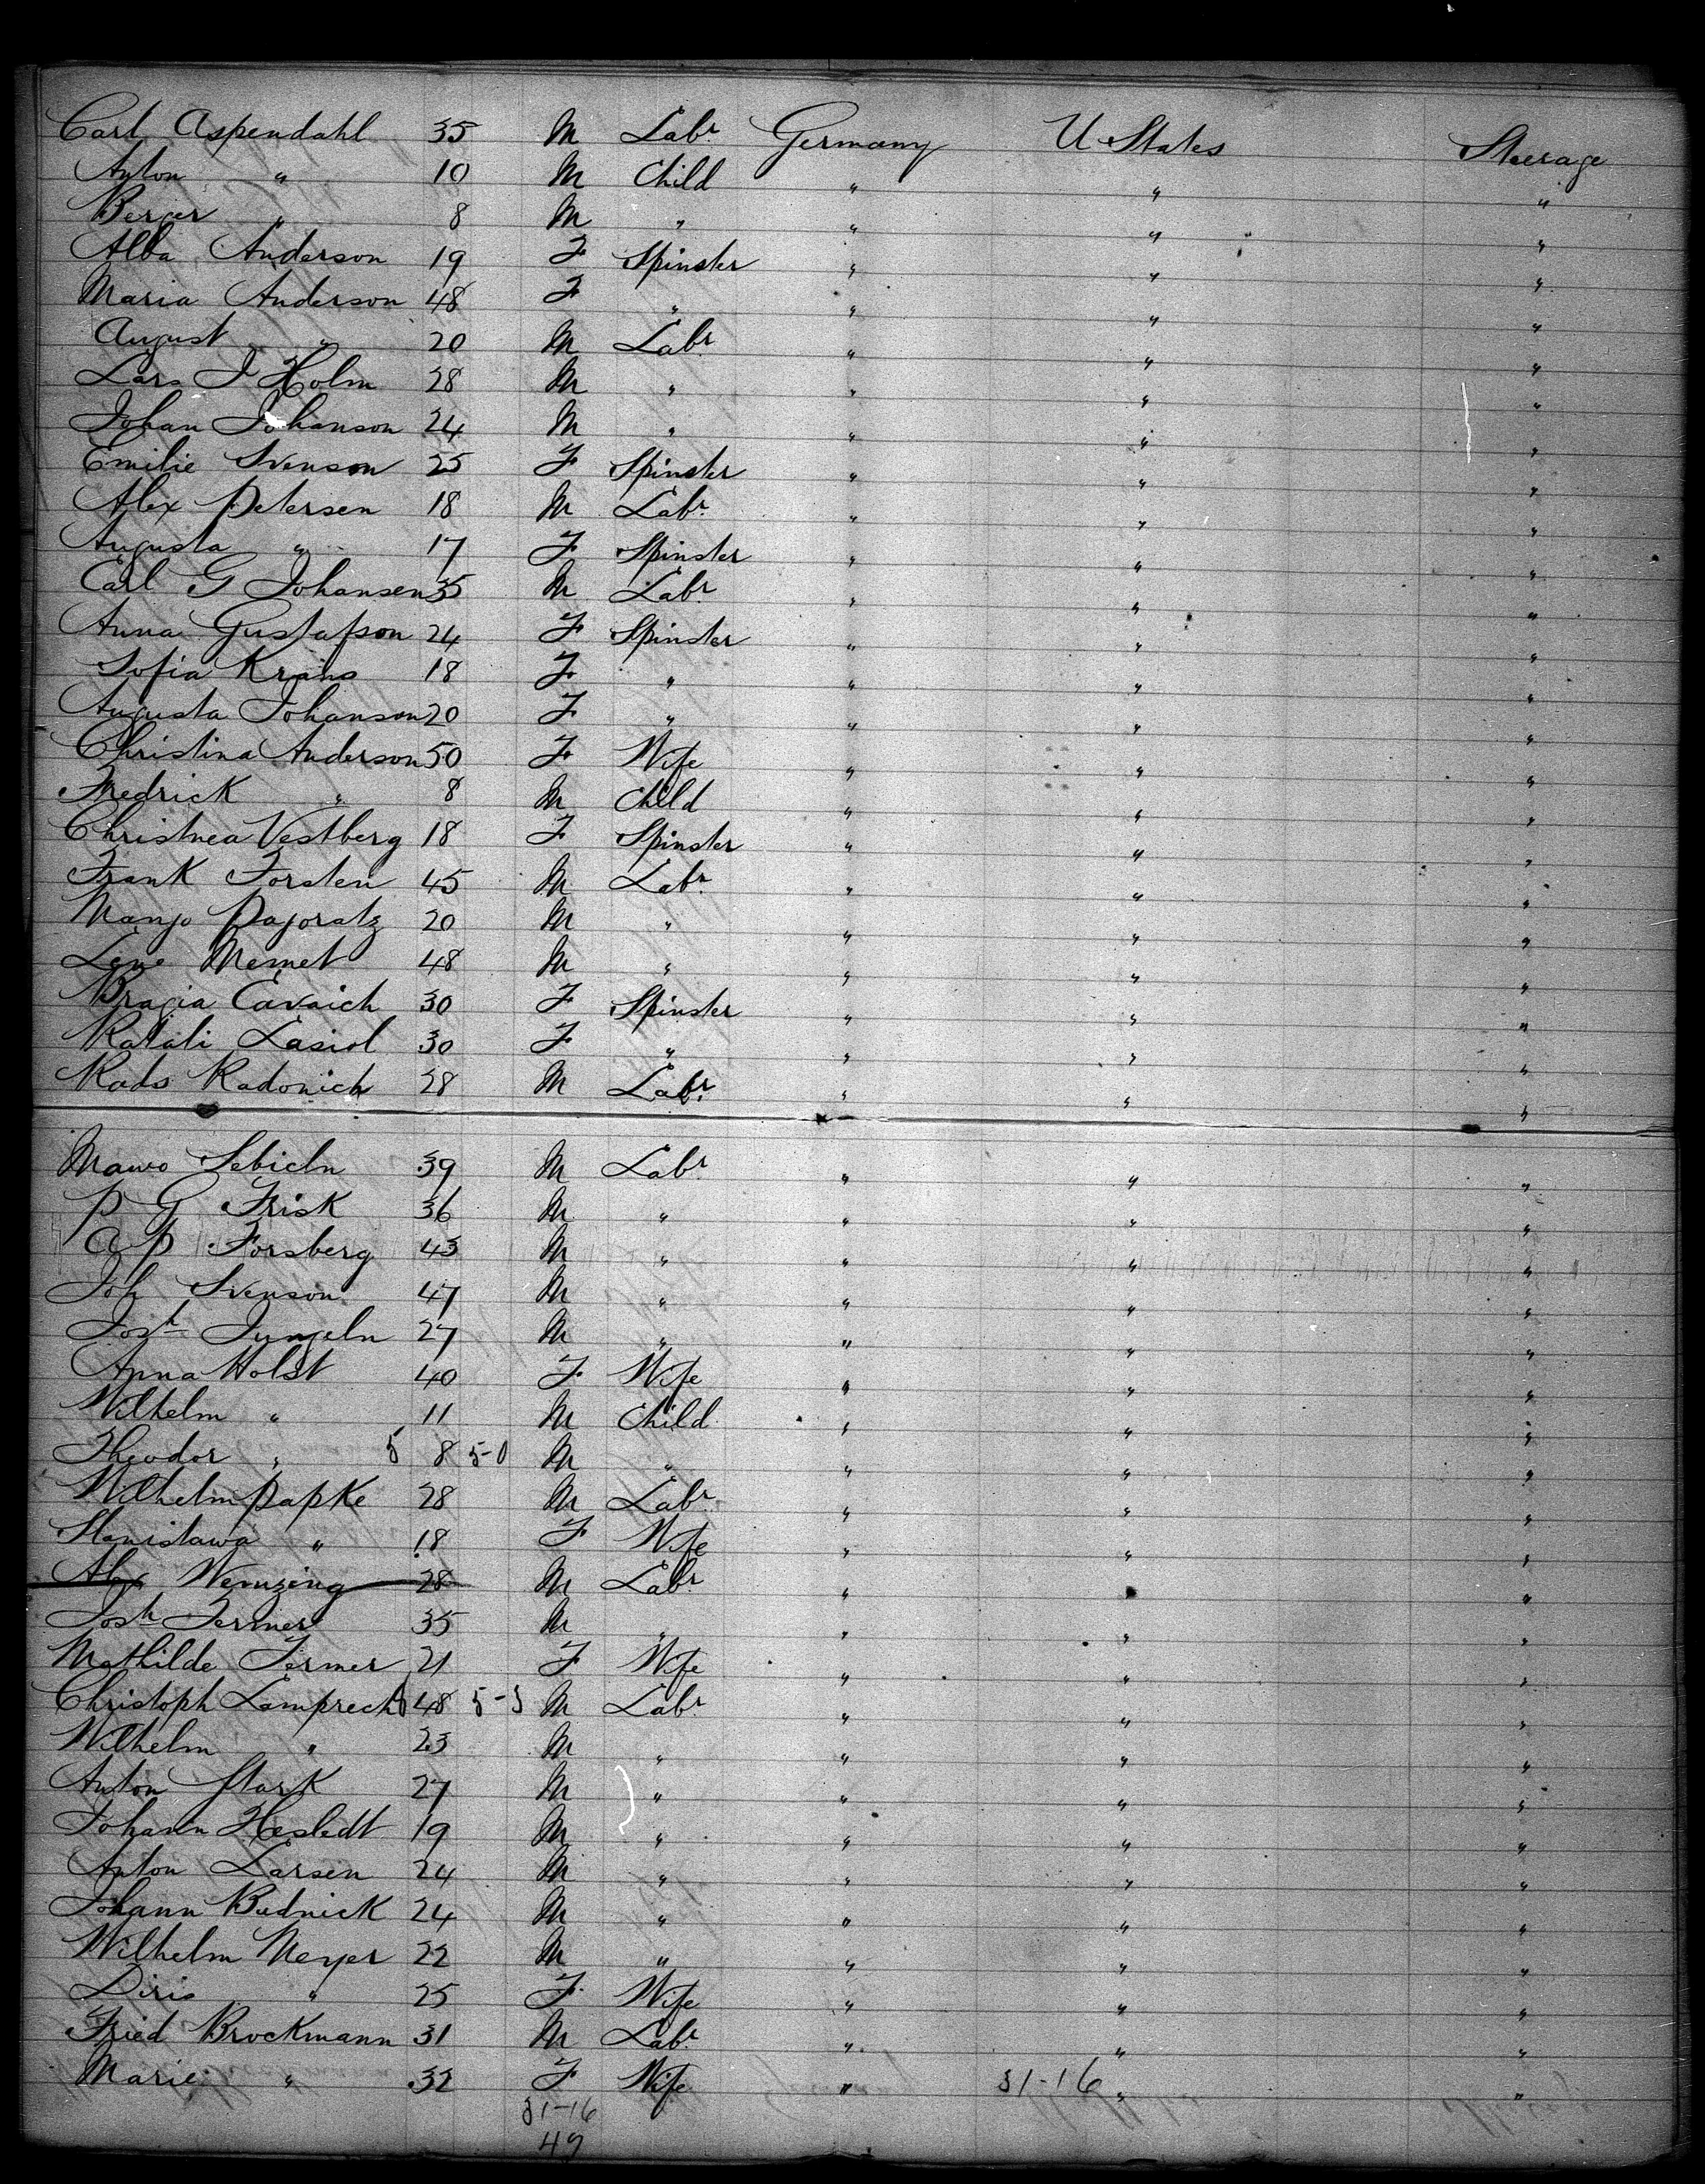 Carl Aspendahl 35 M Labr Germany U States Steerage
Anton " 10 M Child " " "
Berger " 8 M " " " "
Alba Anderson 19 F Spinster " " "
Maria Anderson 48 F " " " "
August " 20 M Labr " " "
Lars J Holm 28 M " " " "
Johan Johanson 24 M " " " "
Emilie Svenson 25 F Spinster " " "
Alex Petersen 18 M Labr " " "
Augusta " 17 F Spinster " " "
Carl G Johansen 35 M Labr " " "
Anna Gustafson 24 F Spinster " " "
Sofia Krans 18 F " " " "
Augusta Johanson 20 F " " " "
Christina Anderson 50 F Wife " " "
Fredrick " 8 M Child " " "
Christnea Vestberg 18 F Spinster " " "
Frank Forsten 45 M Labr " " "
Manjo Pajoratz 20 M " " " "
Lene Memet 48 M " " " "
Bragia Cavaich 30 F Spinster " " "
Katali Lasiol 30 F " " " "
Rads Radonich 28 M Labr " " "
Mawo Sebicln 39 M Labr " " "
P G Frisk 36 M " " " "
A P Forsberg 43 M " " " "
Joh Svenson 47 M " " " "
Josh Jungeln 27 M " " " "
Anna Holst 40 F Wife " " "
Wilhelm " 11 M Child " " "
Theodor " 5 8 5-0 M " " " "
Wilhelm Papke 28 M Labr " " "
Stanistawa " 18 F Wife " " "
Alex Wenzing 28 M Labr " " "
Josh Fermer 35 M " " " "
Mathilde Fermer 21 F Wife " " "
Christoph Lamprecht 48 5-5 M Labr " " "
Wilhelm " 23 M " " " "
Anton Stark 27 M " " " "
Johann Hesledt 19 M " " " "
Anton Larsen 24 M " " " "
Johann Budnick 24 M " " " "
Wilhelm Meyer 22 M " " " "
Diris " 25 F Wife " " "
Fried Brockmann 31 M Labr " " "
Marie " 32 F Wife " 31-16 " "
31-16
49